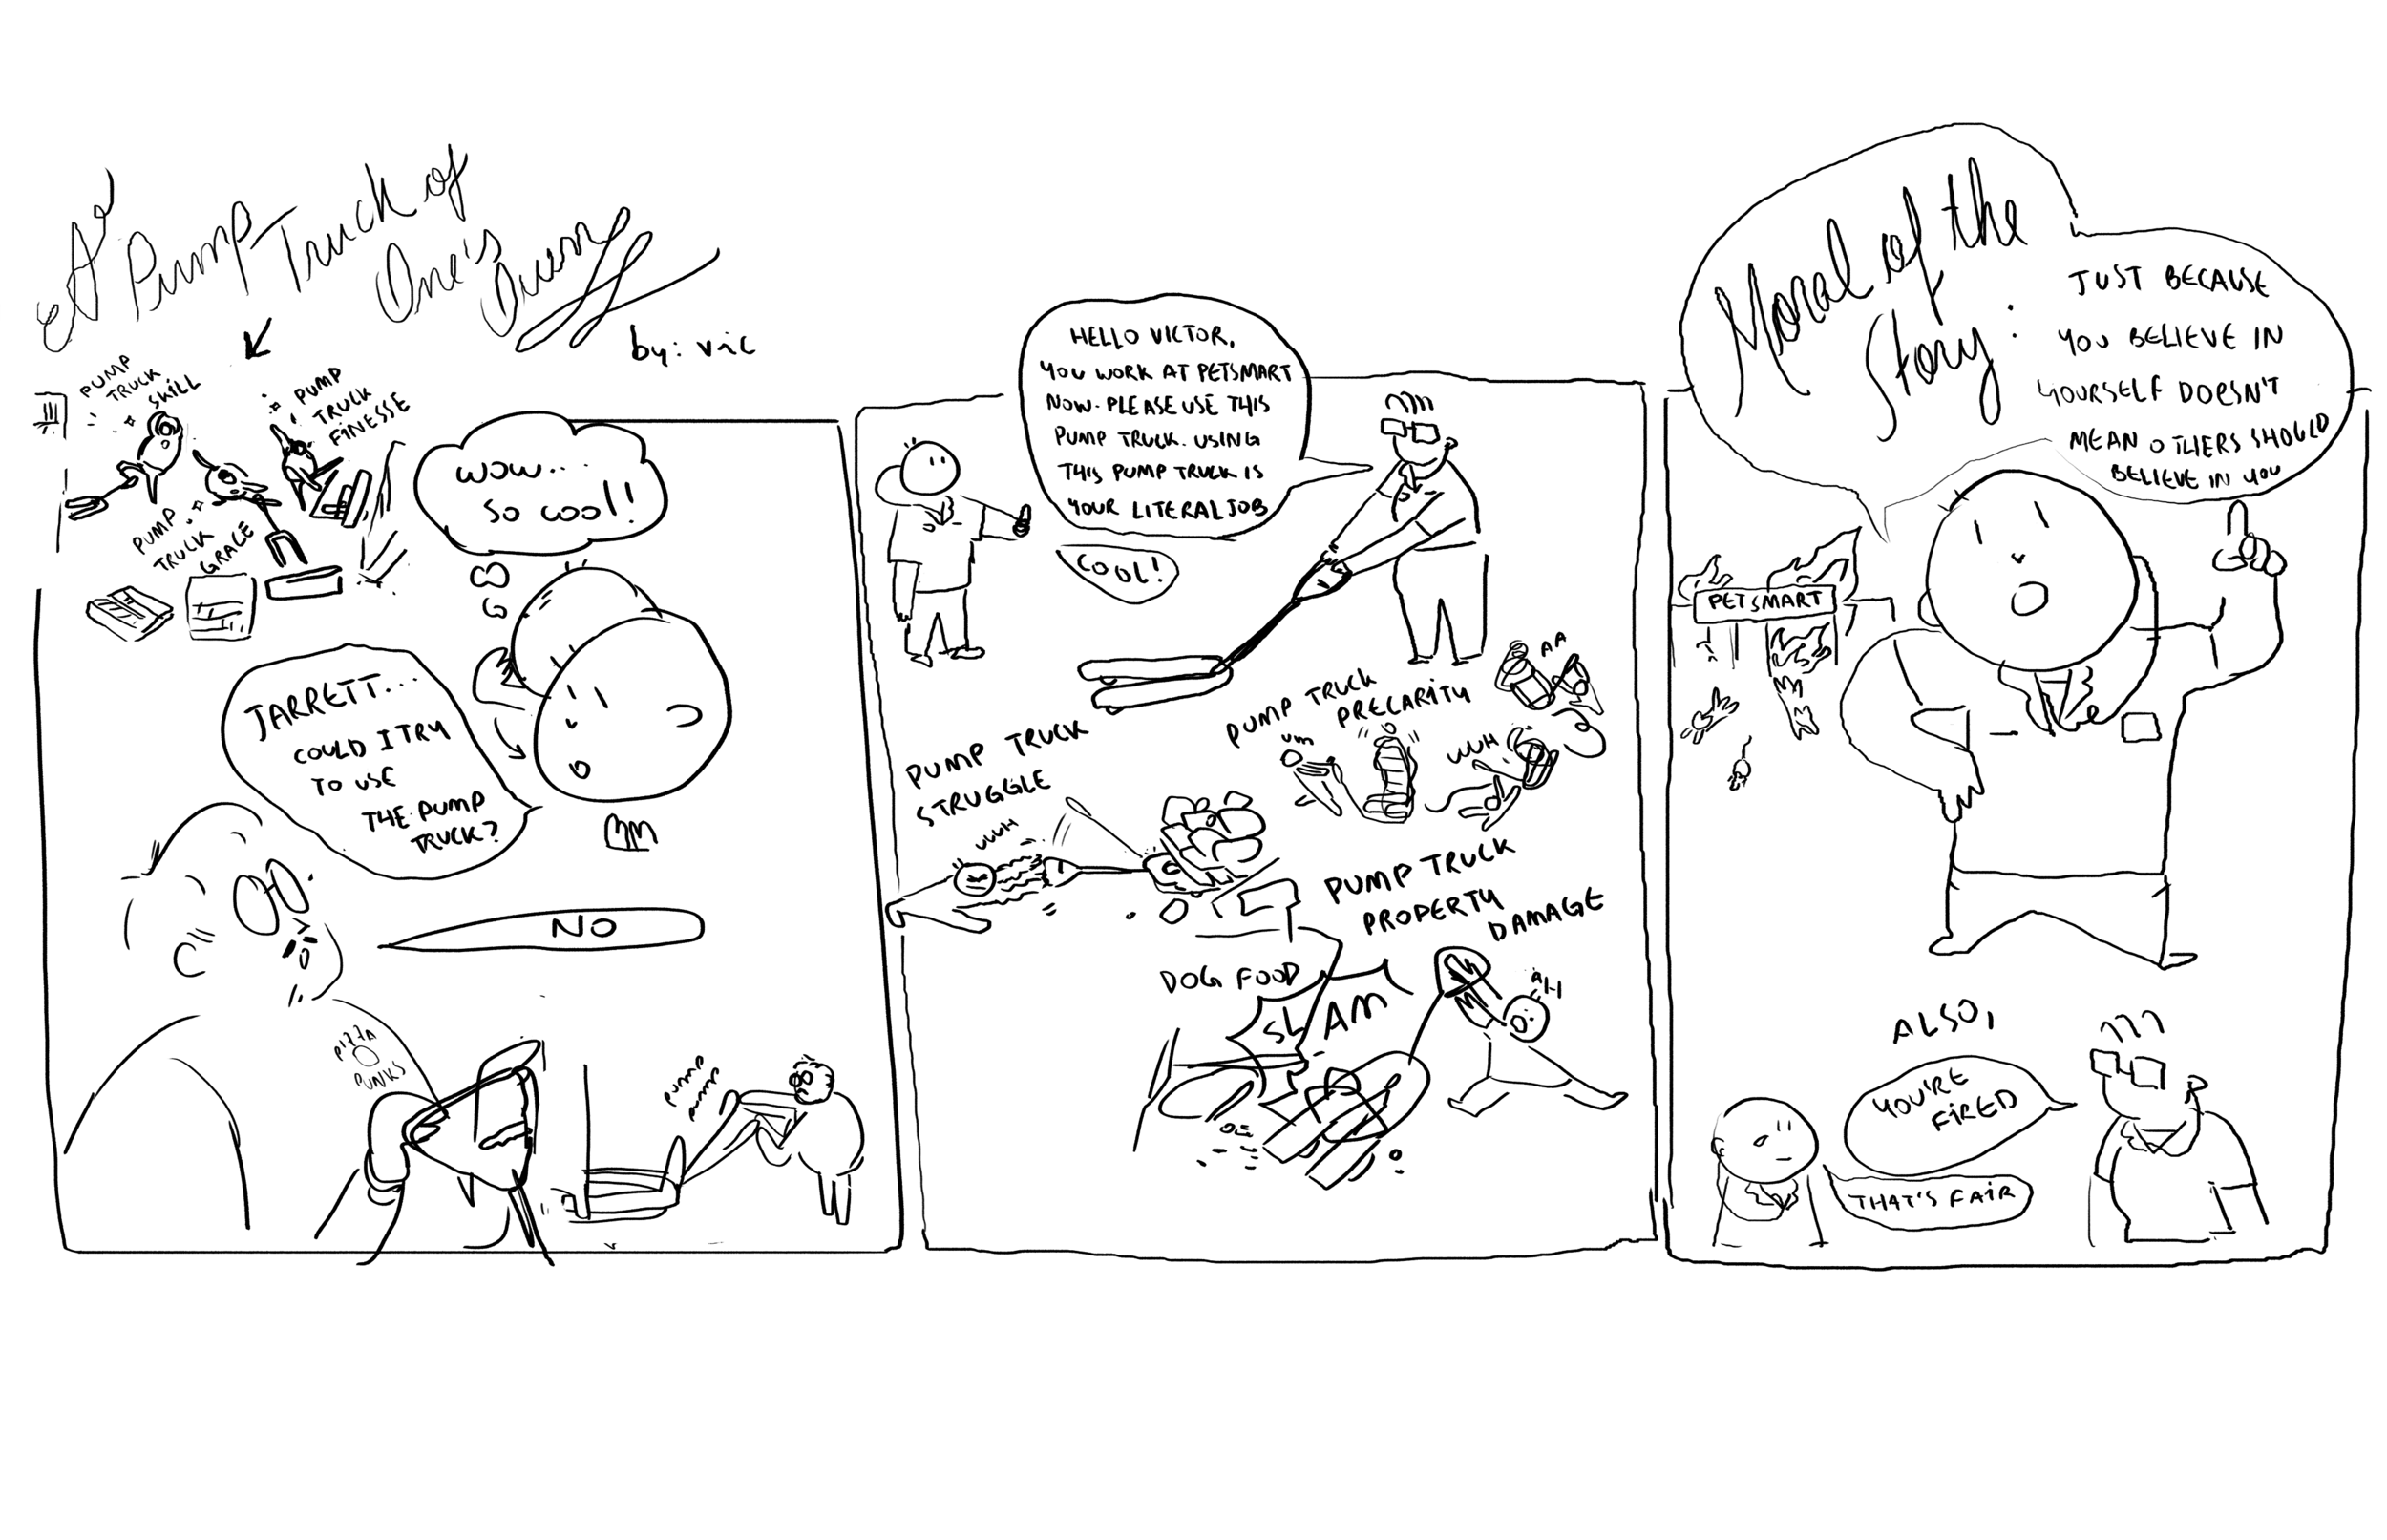 A Pump Truck of
One's Own
by: vic
PUMP
TRUCK
SKILL
PUMP
TRUCK
FINESSE
PUMP
TRUCK
GRACE
WOW...
SO COOL!!
JARRETT...
COULD I TRY
TO USE
THE PUMP
TRUCK?
NO
PIZZA
PUNKS
PUMP
PUMP
HELLO VICTOR,
YOU WORK AT PETSMART
NOW. PLEASE USE THIS
PUMP TRUCK. USING
THIS PUMP TRUCK IS
YOUR LITERAL JOB
COOL!
PUMP TRUCK
STRUGGLE
UUUH
PUMP TRUCK
PRECARITY
UM
UUUH
AA
PUMP TRUCK
PROPERTY
DAMAGE
DOG FOOD
SLAM
AH
Moral of the
Story:
JUST BECAUSE
YOU BELIEVE IN
YOURSELF DOESN'T
MEAN OTHERS SHOULD
BELIEVE IN YOU
PETSMART
ALSO,
YOU'RE
FIRED
THAT'S FAIR